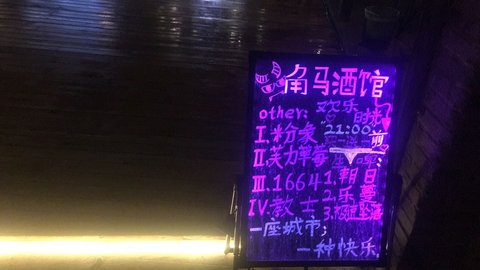 角马酒馆
other: 欢乐时光
I.粉象 21:00前
II.芙力草莓
III.1664 1.朝日
IV.教士 2.乐蔓
3.极速坠落
一座城市;
一种快乐